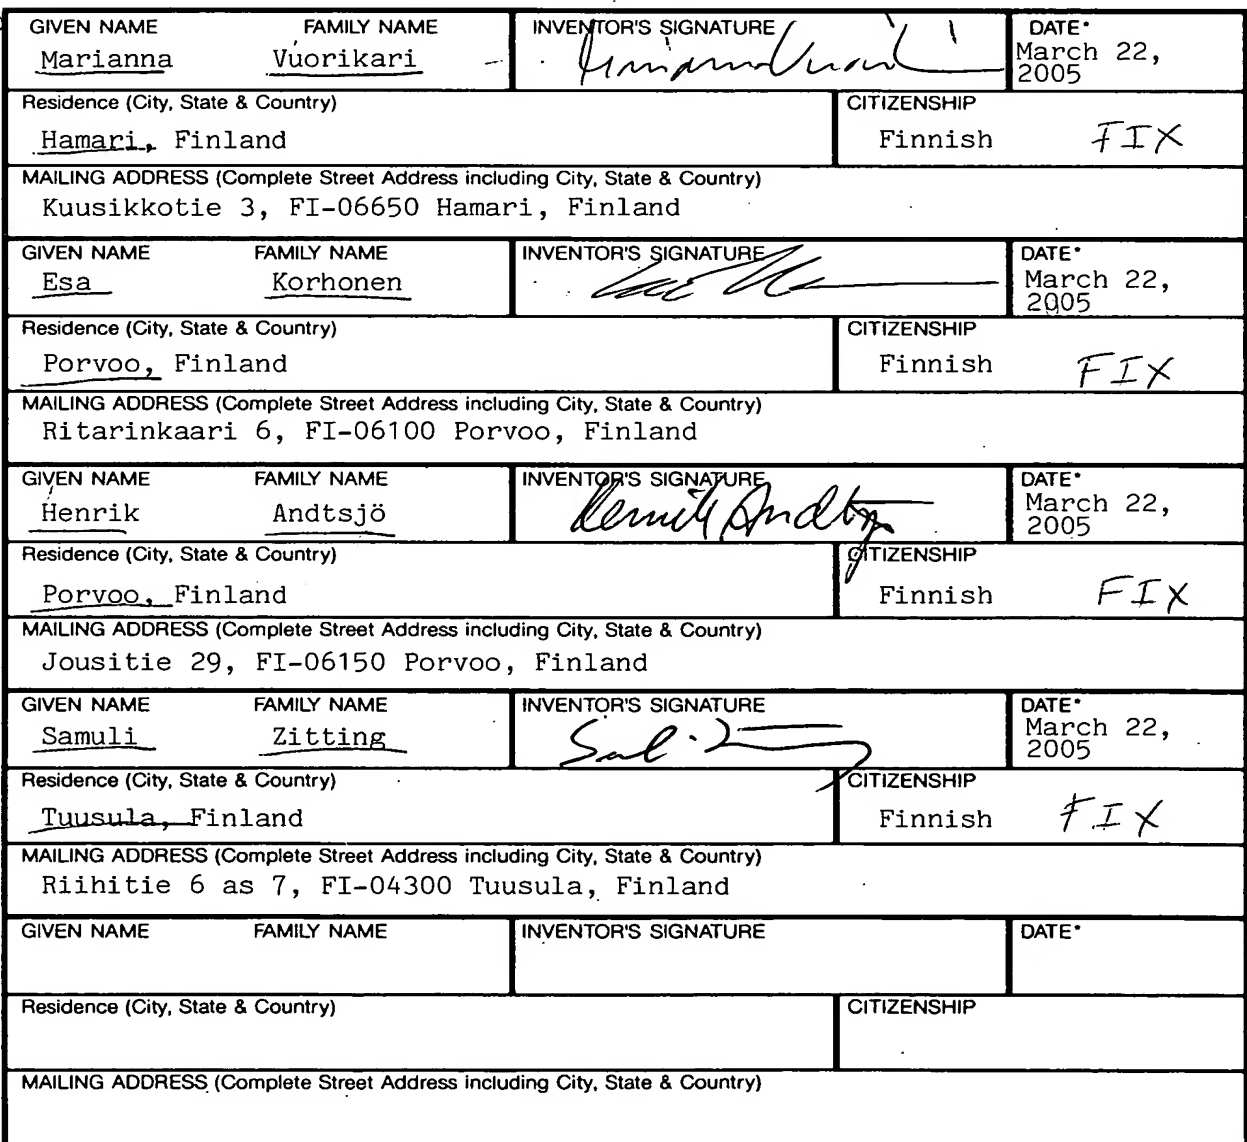 GIVEN NAME FAMILY NAME INVENTOR'S SIGNATURE DATE*
Marianna Vuorikari March 22,
2005
Residence (City, State & Country) CITIZENSHIP
Hamari, Finland Finnish FIX
MAILING ADDRESS (Complete Street Address including City, State & Country)
Kuusikkotie 3, FI-06650 Hamari, Finland
GIVEN NAME FAMILY NAME INVENTOR'S SIGNATURE DATE*
Esa Korhonen March 22,
2005
Residence (City, State & Country) CITIZENSHIP
Porvoo, Finland Finnish FIX
MAILING ADDRESS (Complete Street Address including City, State & Country)
Ritarinkaari 6, FI-06100 Porvoo, Finland
GIVEN NAME FAMILY NAME INVENTOR'S SIGNATURE DATE*
Henrik Andtsjö Henrik Andtsjö March 22,
2005
Residence (City, State & Country) CITIZENSHIP
Porvoo, Finland Finnish FIX
MAILING ADDRESS (Complete Street Address including City, State & Country)
Jousitie 29, FI-06150 Porvoo, Finland
GIVEN NAME FAMILY NAME INVENTOR'S SIGNATURE DATE*
Samuli Zitting March 22,
2005
Residence (City, State & Country) CITIZENSHIP
Tuusula, Finland Finnish FIX
MAILING ADDRESS (Complete Street Address including City, State & Country)
Riihitie 6 as 7, FI-04300 Tuusula, Finland
GIVEN NAME FAMILY NAME INVENTOR'S SIGNATURE DATE*
Residence (City, State & Country) CITIZENSHIP
MAILING ADDRESS (Complete Street Address including City, State & Country)